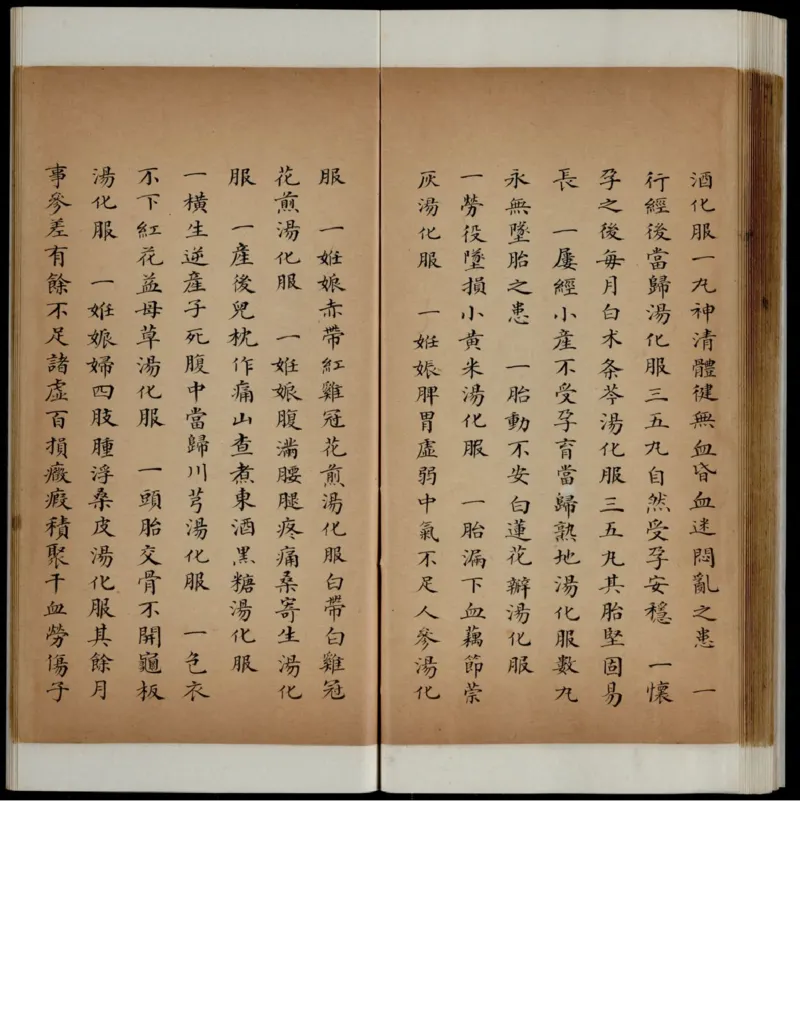 酒化服一九神清體健無血昏血迷悶亂之患　一
行經後當歸湯化服三五九自然受孕安穩　一懷
孕之後每月白术条芩湯化服三五九其胎堅固易
長　一屢經小產不受孕育當歸熟地湯化服數九
永無墜胎之患　一胎動不安白蓮花瓣湯化服
一勞役墜損小黃米湯化服　一胎漏下血藕節棕
灰湯化服　一姙娠脾胃虛弱中氣不足人參湯化
服　一姙娠赤帶紅雞冠花煎湯化服白帶白雞冠
花煎湯化服　一姙娠腹滿腰腿疼痛桑寄生湯化
服　一產後兒枕作痛山查煮東酒黑糖湯化服
一橫生逆產子死腹中當歸川芎湯化服　一色衣
不下紅花益母草湯化服　一頭胎交骨不開龜板
湯化服　一姙娠婦四肢腫浮桑皮湯化服其餘月
事參差有餘不足諸虛百損癥瘕積聚干血勞傷子